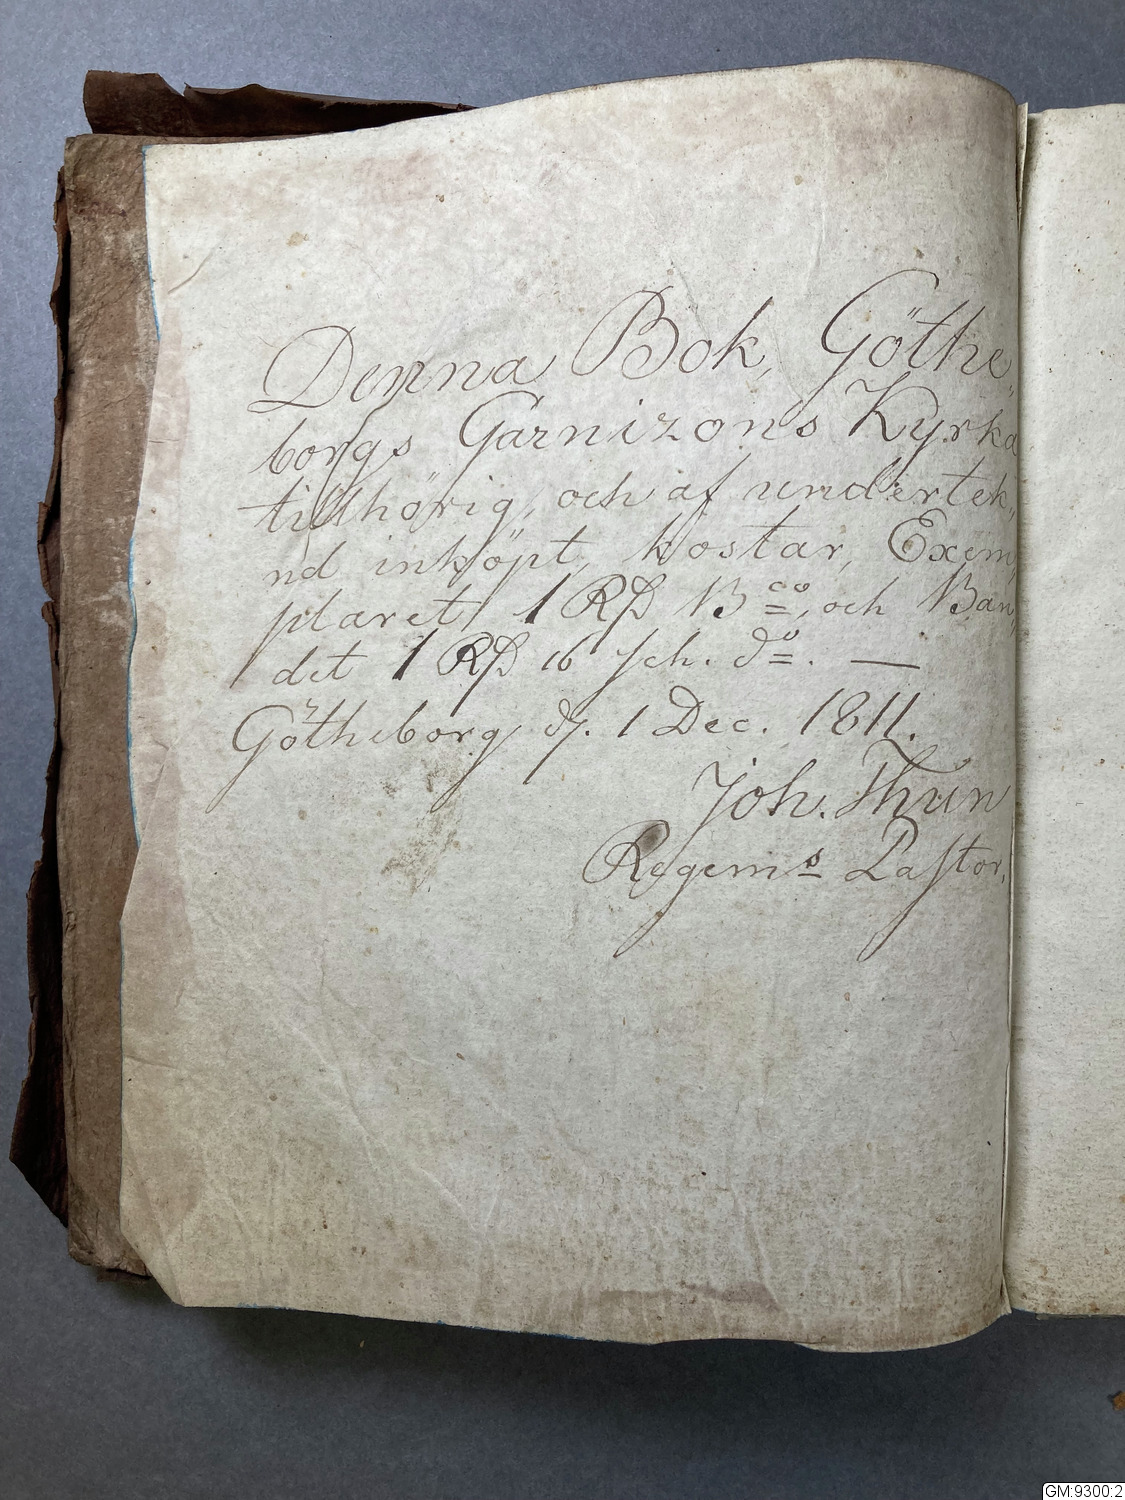 Denna Bok, Göthe„
borgs Garnizons Kyrka
tillhörig, och af undertek„
nd inköpt, kostar, Exem„
plaret 1 RD B:co, och Ban„
det 1 RD 16 sch. d:o. —
Götheborg d. 1 Dec. 1811.
Joh. Thun
Regem:s Pastor.
GM:9300:2